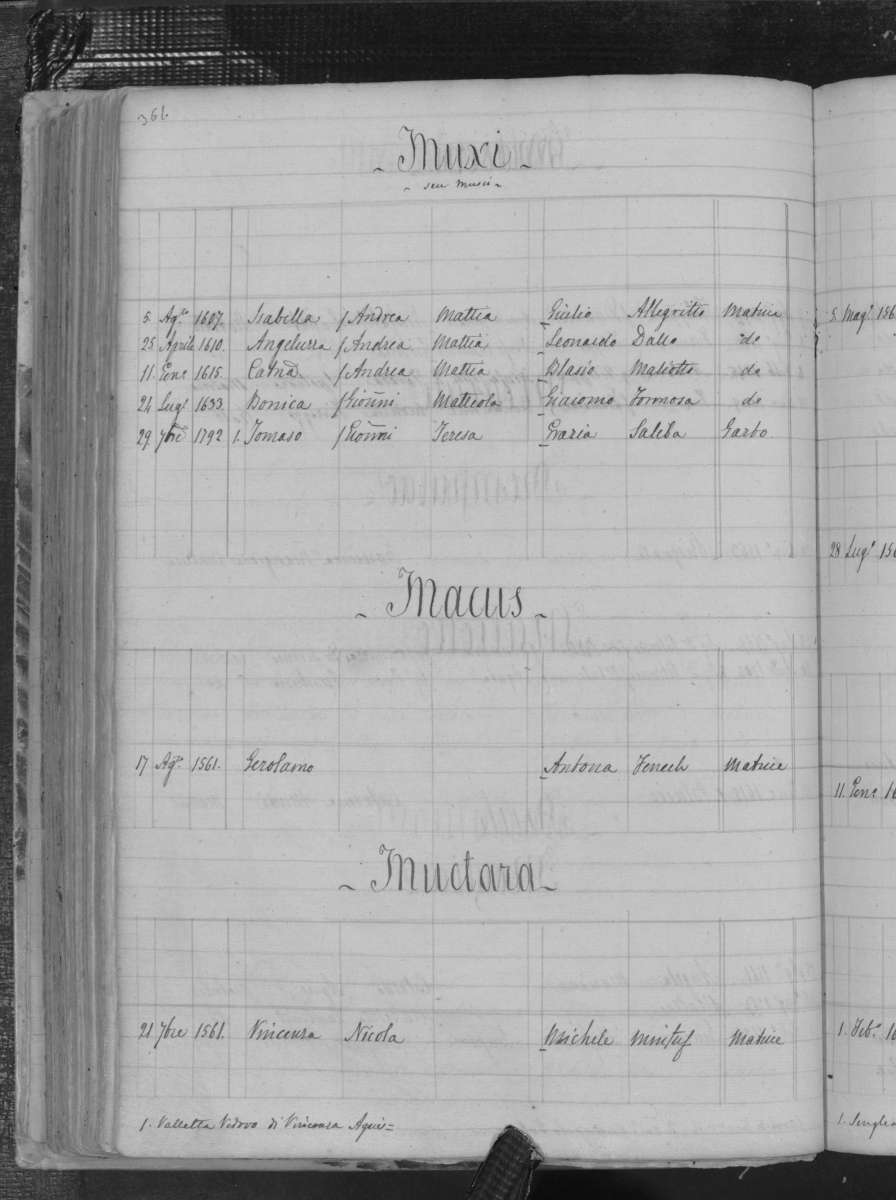 361.
Muxi
seu Musci
5 Ag.to 1607. Isabella f Andrea Mattia Giulio Allegritto Matrice
25 Aprile 1610. Angelussa f Andrea Mattia Leonardo Dallo do
11. Genr 1615. Catnā f Andrea Mattia Blasio Maliotto do
24 Lugl 1633. Bonica f Gioñni Matteola Giacomo Formosa do
29. 7bre 1792 1. Tomaso f Gioñni Teresa Grazia Saliba Garbo.
Macus
17 Ag.o 1561. Gerolamo Antona Fenech Matrice
Muctara
21 7bre 1561. Vincensa Nicola Michele Mintuf Matrice
1. Valletta Vedovo di Vincensa Agius=
5 Mag.o 156
28 Lug.o 156
11. Genr 16
1. Feb.o 16
1. Senglea